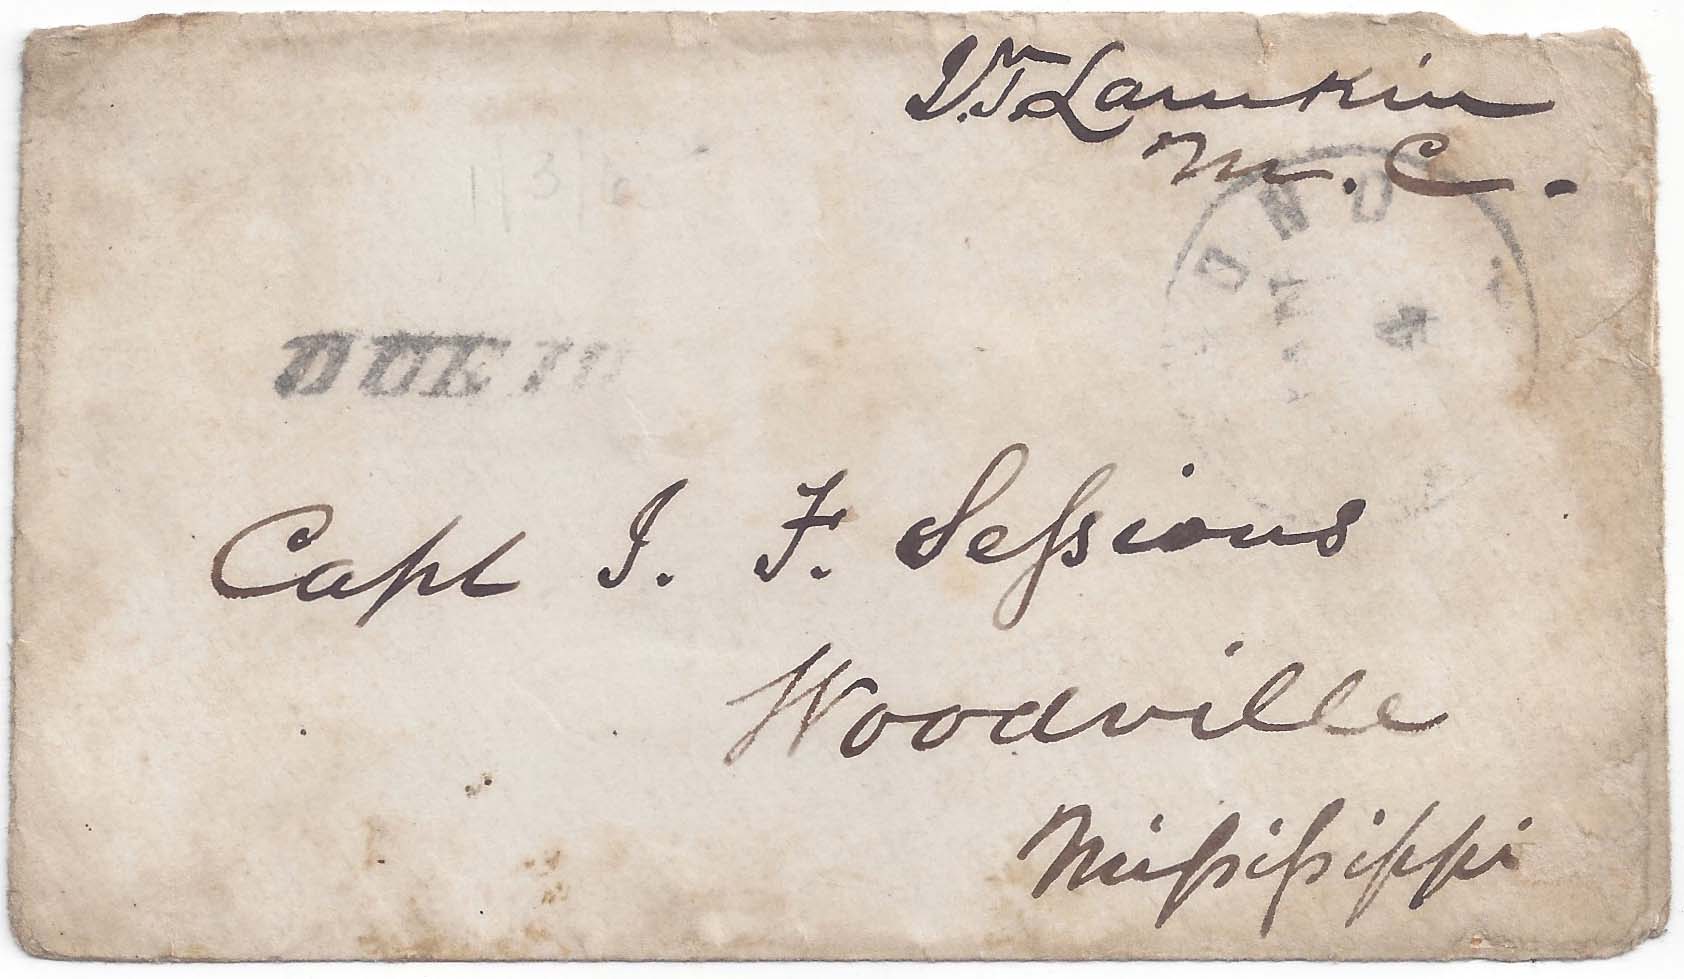 J.T. Lamkin
M. C.
1/3/6
DUE 10
Capt J. F. Sessions
Woodville
Mississippi